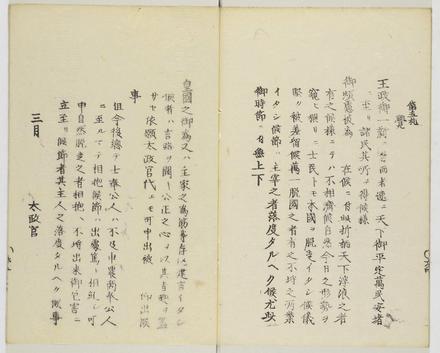 第五札
覚
王政御一新ニ付而者速ニ天下御平定萬民安堵
ニ至リ諸民其所ヲ得候様
御煩慮被為 在候ニ付此折柄天下浮浪之者
有之候様ニテハ不相濟候自然今日之形勢ヲ
窺ヒ猥リニ士民トモ本國ヲ脱走イタシ候儀
堅ク被差留候萬一脱國之者有之不埒之所業
イタシ候節ハ主宰之者落度タルヘク候尤此
御時節ニ付無上下
皇國之御為又ハ主家之為筋等存込建言イタシ
候者ハ言路ヲ開キ公正之心ヲ以其旨趣ヲ盡
サセ依願太政官代ヘモ可申出被 仰出候
事
但今後總テ士奉公人ハ不及申農商奉公人
ニ至ルマテ相抱候節ハ出處篤ト相糺シ可
申自然脱走之者相抱ヘ不埒出来御厄害ニ
立至リ候節者其主人之落度タルヘク候事
三月 太政官